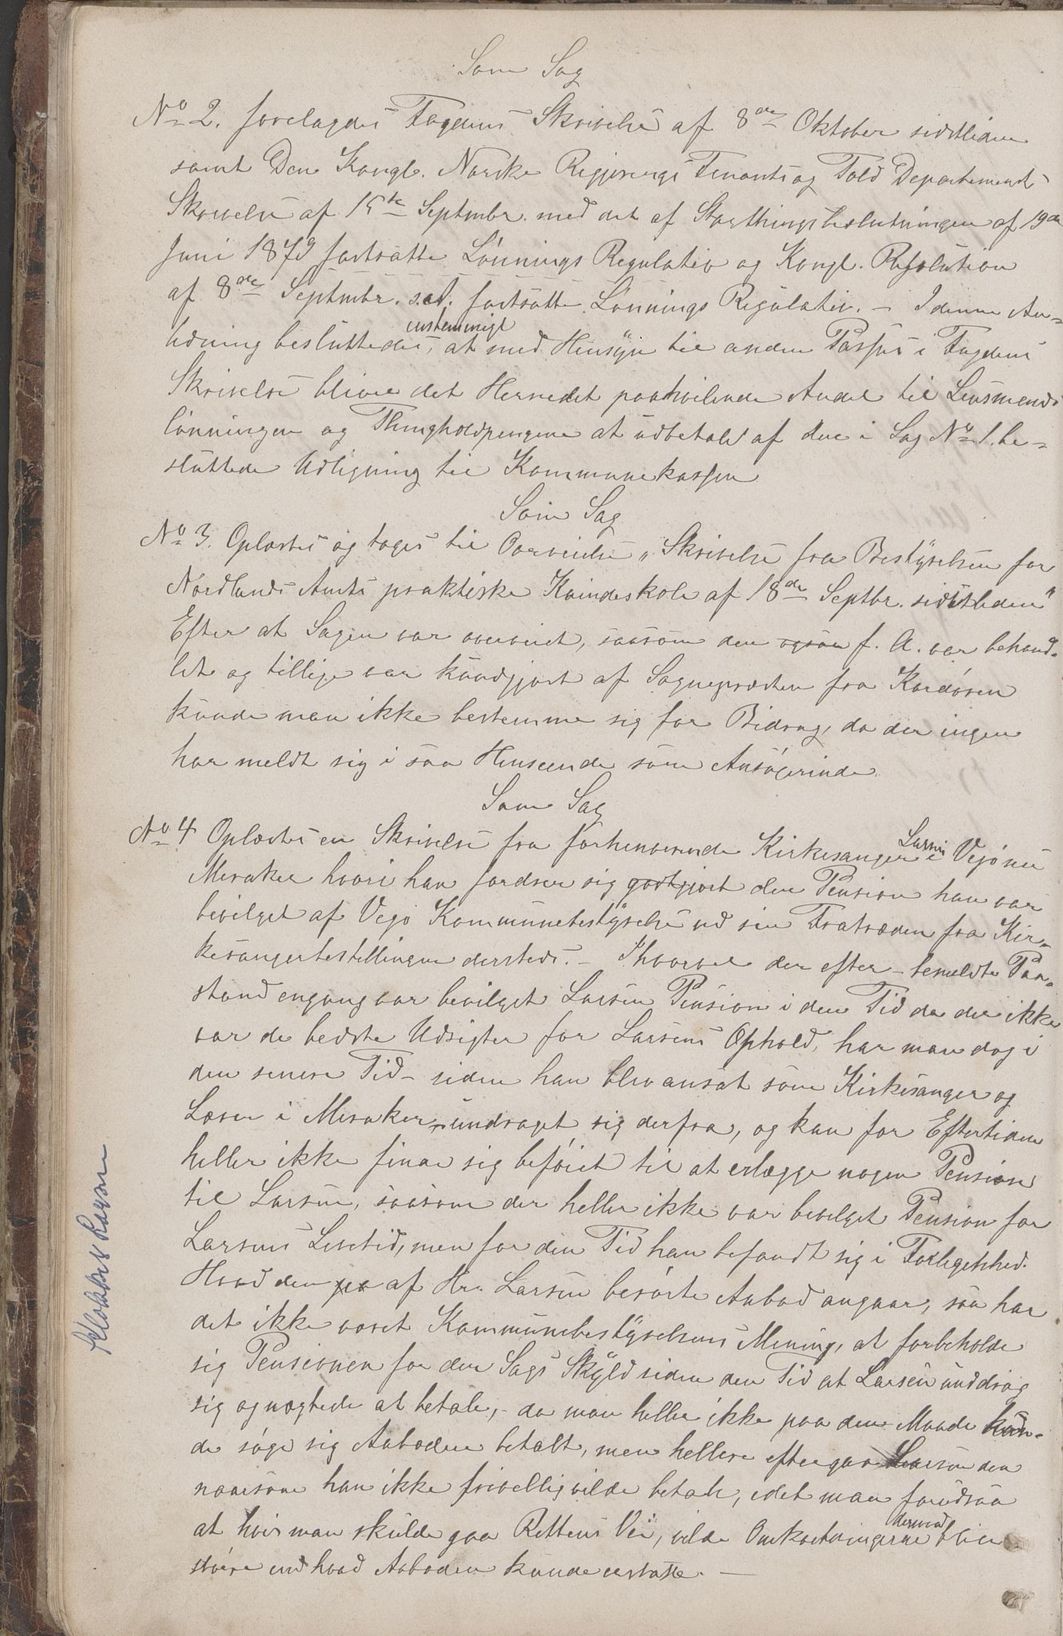 Som Sag
No 2. forelagdes Fogdens Skrivelse af 8de Oktober sidstleden
samt Den Kongl. Norske Regjerings Finants og Told Departements
Skrivelse af 15de Septmbr. med det af Storthingsbeslutningen af 19de
Juni 1879 fastsatte Lønnings Regulativ og Kongl. Resolution
af 8de Septmbr. s.A. fastsatte Lønnings Regulativ. – I denne An=
ledning besluttedes, enstemmigt at med Hensyn til anden Passus i Fogdens
Skrivelse bliver det Herredet paahvilende Andel til Lensmands
lønningen og Thingholdpengene at udbetale af den i Sag No 1. be=
sluttede Udligning til Kommunekassen
Som Sag
No 3. Oplæstes og toges til Overveielse „Skrivelse fra Bestyrelsen for
Nordlands Amts praktiske Kvindeskole af 18de Septbr. sidstleden"
Efter at Sagen var overveiet, saasom den ogsaa f. A. var behand=
let og tillige var kundgjort af Sognepræsten fra Kordøren
kunde man ikke bestemme sig for Bidrag, da der ingen
har meldt sig i saa Henseende som Ansøgerinde
Som Sag
No 4 Oplæstes en Skrivelse fra forhenværende Kirkesanger Larsen i Vejø nu
Meraker hvori han fordrer sig godtgjort den Pension han var
bevilget af Vejø Kommunebestyrelse ved sin Fratræden fra Kir=
kesangerbestillingen dersteds. – Ihvorvel der efter bemeldte Paa=
stand engang var bevilget Larsen Pension i den Tid da der ikke
var de bedste Udsigter for Larsens Ophold, har man dog i
den senere Tid – siden han blev ansat som Kirkesanger og
Lærer i Meraker – unddraget sig derfra, og kan for Eftertiden
heller ikke finde sig beføiet til at erlægge nogen Pension
til Larsen, saasom der heller ikke var bevilget Pension for
Larsens Livstid, men for den Tid han befandt sig i Forlegenhed.
Hvad den af Hr. Larsen berørte Aabod angaar, saa har
det ikke været Kommunebestyrelsens Mening, at forbeholde
sig Pensionen for den Sags Skyld siden den Tid at Larsen unddrog
sig og nægtede at betale, – da man heller ikke paa den Maade kun=
de søge sig Aaboden betalt, men hellere eftergav Larsen den
naarsom han ikke frivillig vilde betale, idet man forudsaa
at hvis man skulde gaa Rettens Vei, vilde Omkostningerne derved blive
større end hvad Aaboden kunde erstatte. –
Klokker Larsen